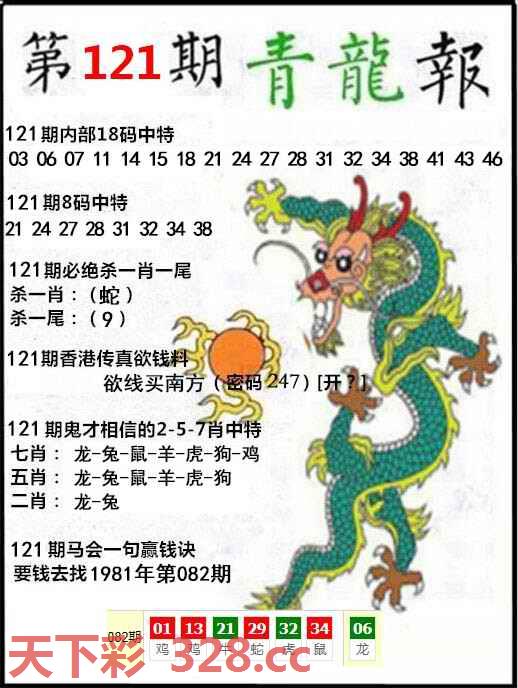 第121期青龍報
121期内部18码中特
03 06 07 11 14 15 18 21 24 27 28 31 32 34 38 41 43 46
121期8码中特
21 24 27 28 31 32 34 38
121期必绝杀一肖一尾
杀一肖：（蛇）
杀一尾：（9）
121期香港传真欲钱料
欲线买南方（密码247）[开？]
121期鬼才相信的2-5-7肖中特
七肖： 龙-兔-鼠-羊-虎-狗-鸡
五肖： 龙-兔-鼠-羊-虎-狗
二肖： 龙-兔
121期马会一句赢钱诀
要钱去找1981年第082期
082期 01 13 21 29 32 34 06
鸡 鸡 牛 蛇 虎 鼠 龙
天下彩 328.cc